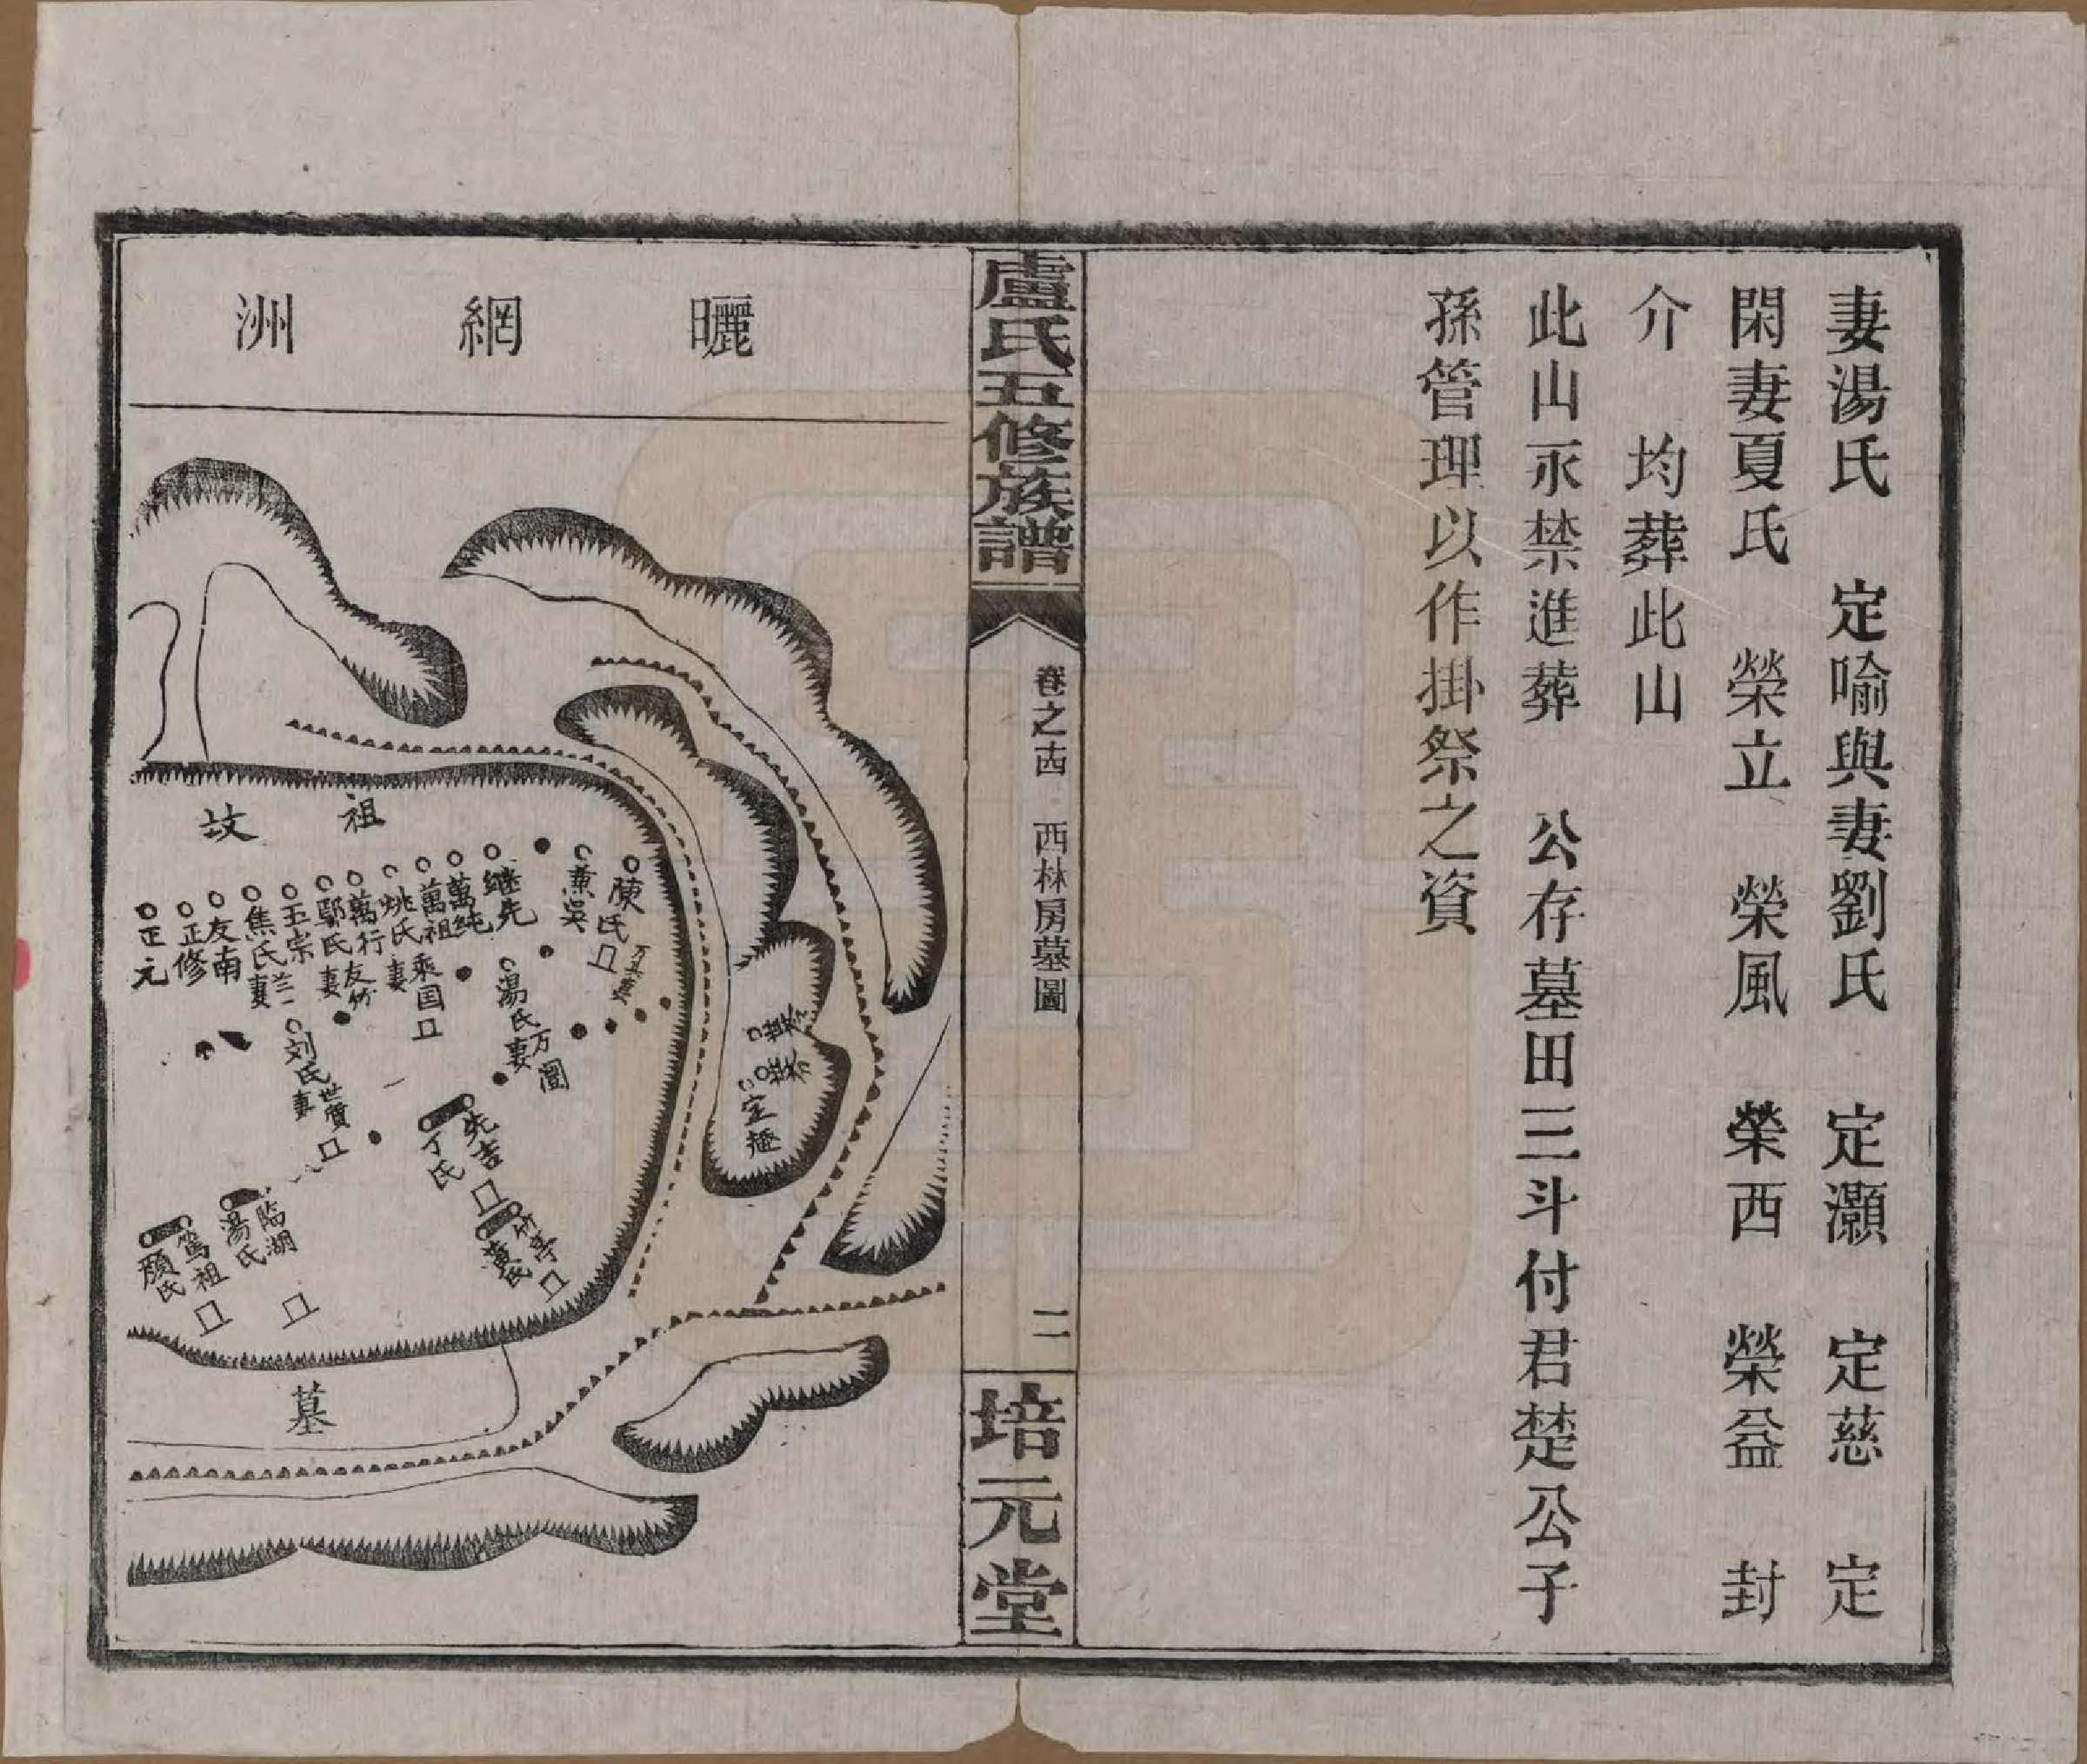 妻湯氏　定喻與妻劉氏　定灝　定慈　定
閑妻夏氏　榮立　榮風　榮西　榮益　封
介　均葬此山
此山永禁進葬　公存墓田三斗付君楚公子
孫管理以作掛祭之資
盧氏五修族譜
卷之十四　西林房墓圖
二
培元堂
曬網洲
祖坟
陳氏
萬其妻
黄吳
继先
萬純
萬祖
乘国
姚氏妻
萬行
友竹
鄢氏妻
五宗
焦氏妻
友南
正修
正元
湯氏妻
万圖
刘氏妻
世質
先吉
丁氏
竹亭
黄氏
臨湖
湯氏
篤祖
顏氏
定極
墓